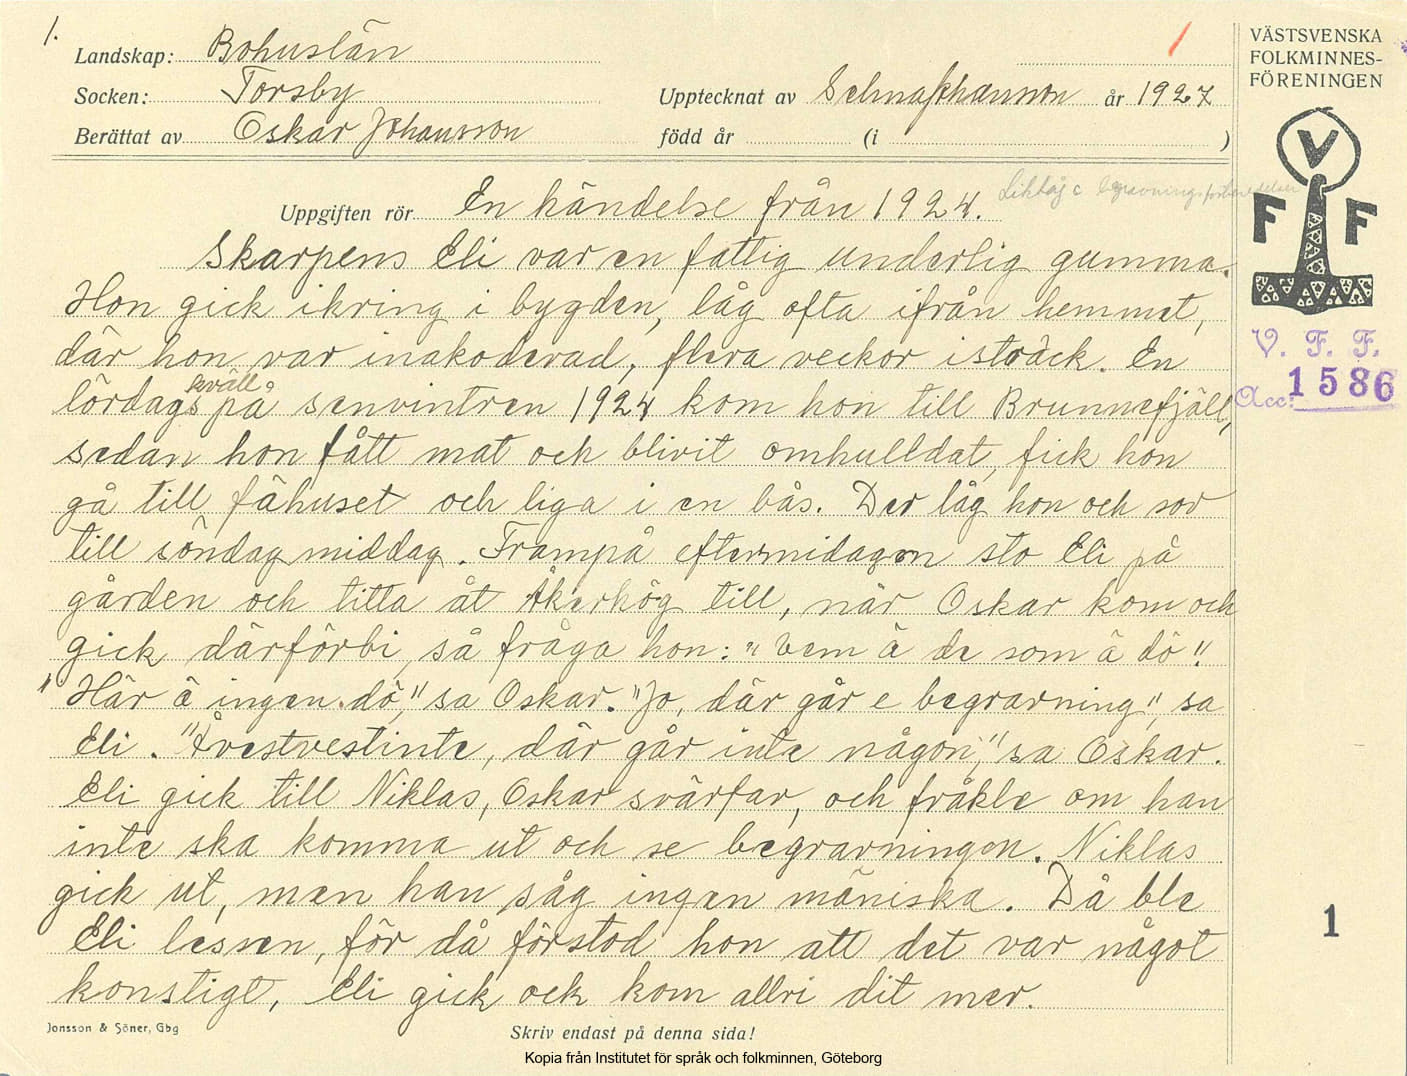 1.
Landskap: Bohuslän
Socken: Torsby
Upptecknat av Selma Johansson år 1927
Berättat av Oskar Johansson
född år (i )
1
VÄSTSVENSKA
FOLKMINNES-
FÖRENINGEN
V
F F
V. F. F.
Acc: 1586
1
Uppgiften rör En händelse från 1924.
Liktåg c begravningsförberedelser
Skarpens Eli var en fattig underlig gumma.
Hon gick ikring i bygden, låg ofta ifrån hemmet,
där hon var inakoderad, flera veckor isträck. En
lördagskväll på senvintren 1924 kom hon till Brunnefjäll,
sedan hon fått mat och blivit omhulldat, fick hon
gå till fähuset och liga i en bås. Der låg hon och sov
till söndag middag. Frampå eftermidagen sto Eli på
gården och titta åt Åkerhög till, när Oskar kom och
gick därförbi, så fråga hon: "Vem ä de som ä dö".
"Här ä ingen dö," sa Oskar. "Jo, där går e begravning", sa
Eli. "Åvestvestinte, där går inte någon," sa Oskar.
Eli gick till Niklas, Oskar svärfar, och fråkte om han
inte ska komma ut och se begravningen. Niklas
gick ut, men han såg ingen mäniska. Då ble
Eli lessen, för då förstod hon att det var något
konstigt, Eli gick ock kom allri dit mer.
Jonsson & Söner, Gbg
Skriv endast på denna sida!
Kopia från Institutet för språk och folkminnen, Göteborg